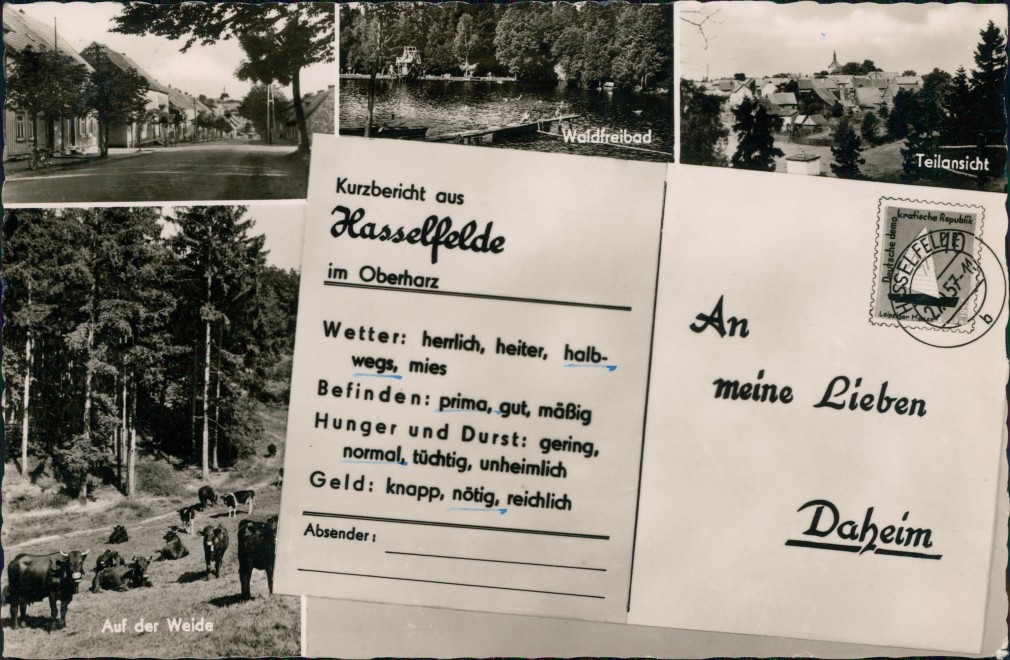 Waldfreibad
Teilansicht
Auf der Weide
Kurzbericht aus
Hasselfelde
im Oberharz
Wetter: herrlich, heiter, halb-
wegs, mies
Befinden: prima, gut, mäßig
Hunger und Durst: gering,
normal, tüchtig, unheimlich
Geld: knapp, nötig, reichlich
Absender:
Deutsche demo
kratische Republik
Leipziger Messe
HASSELFELDE
b
An
meine Lieben
Daheim